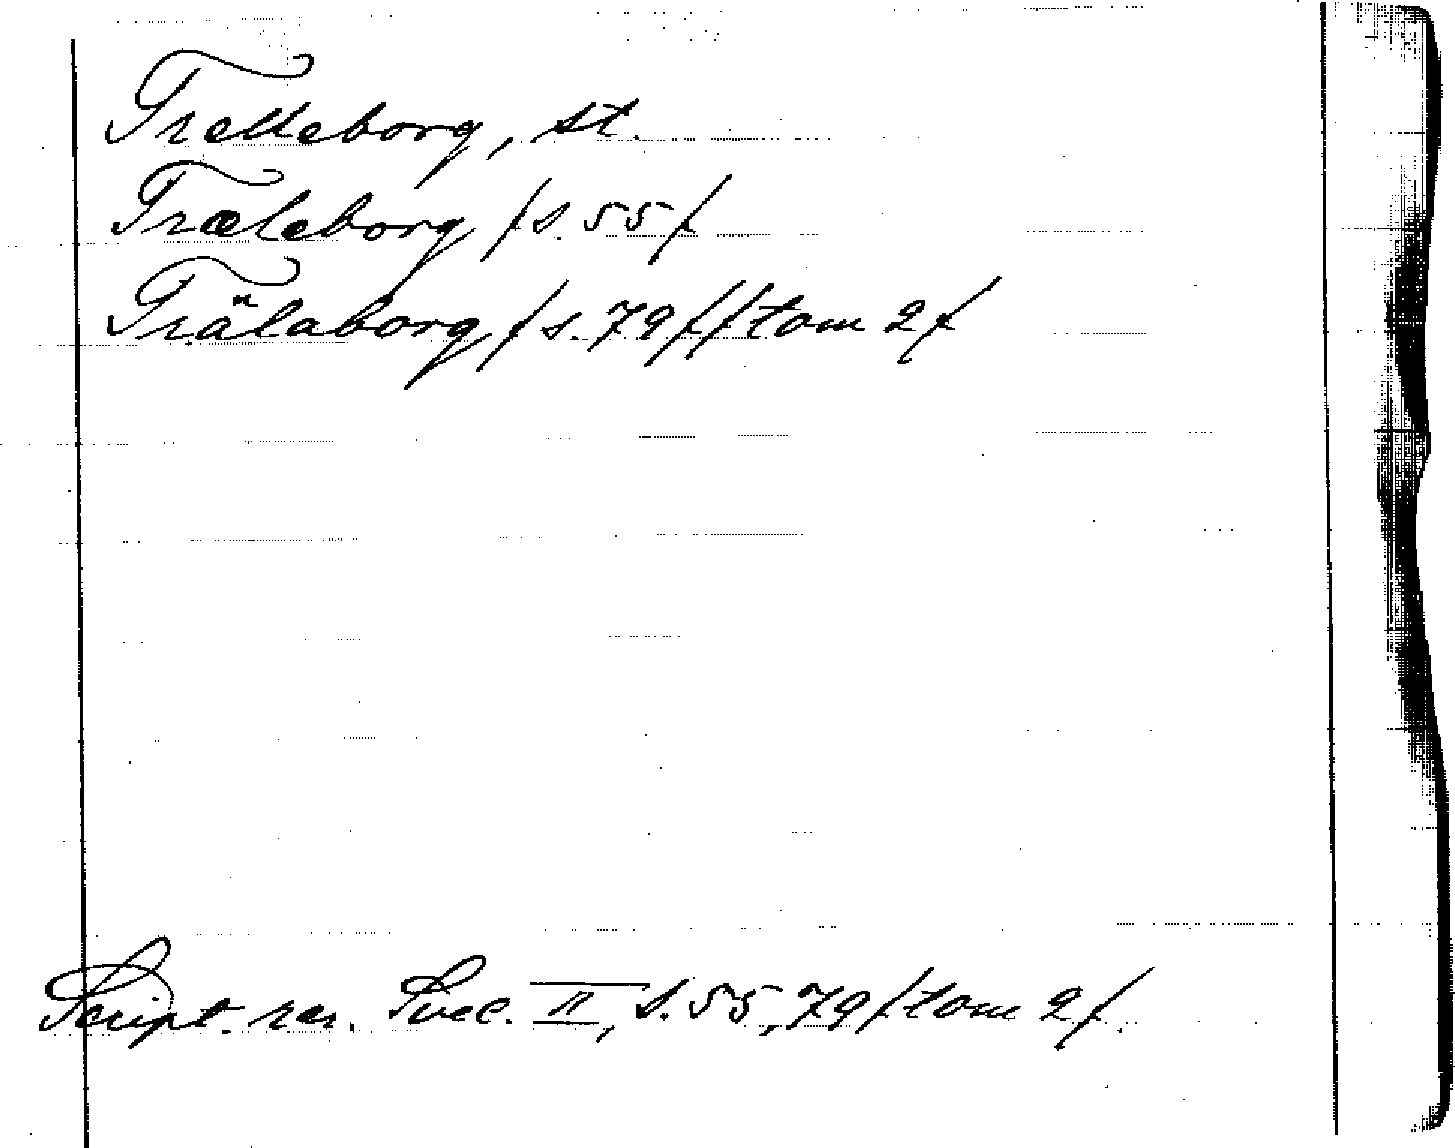 Trelleborg, st.
Træleborg /s. 55/
Trälaborg /s. 79/ /tom 2/
Script. rer. Svec. II, s. 55, 79 /tom 2/.